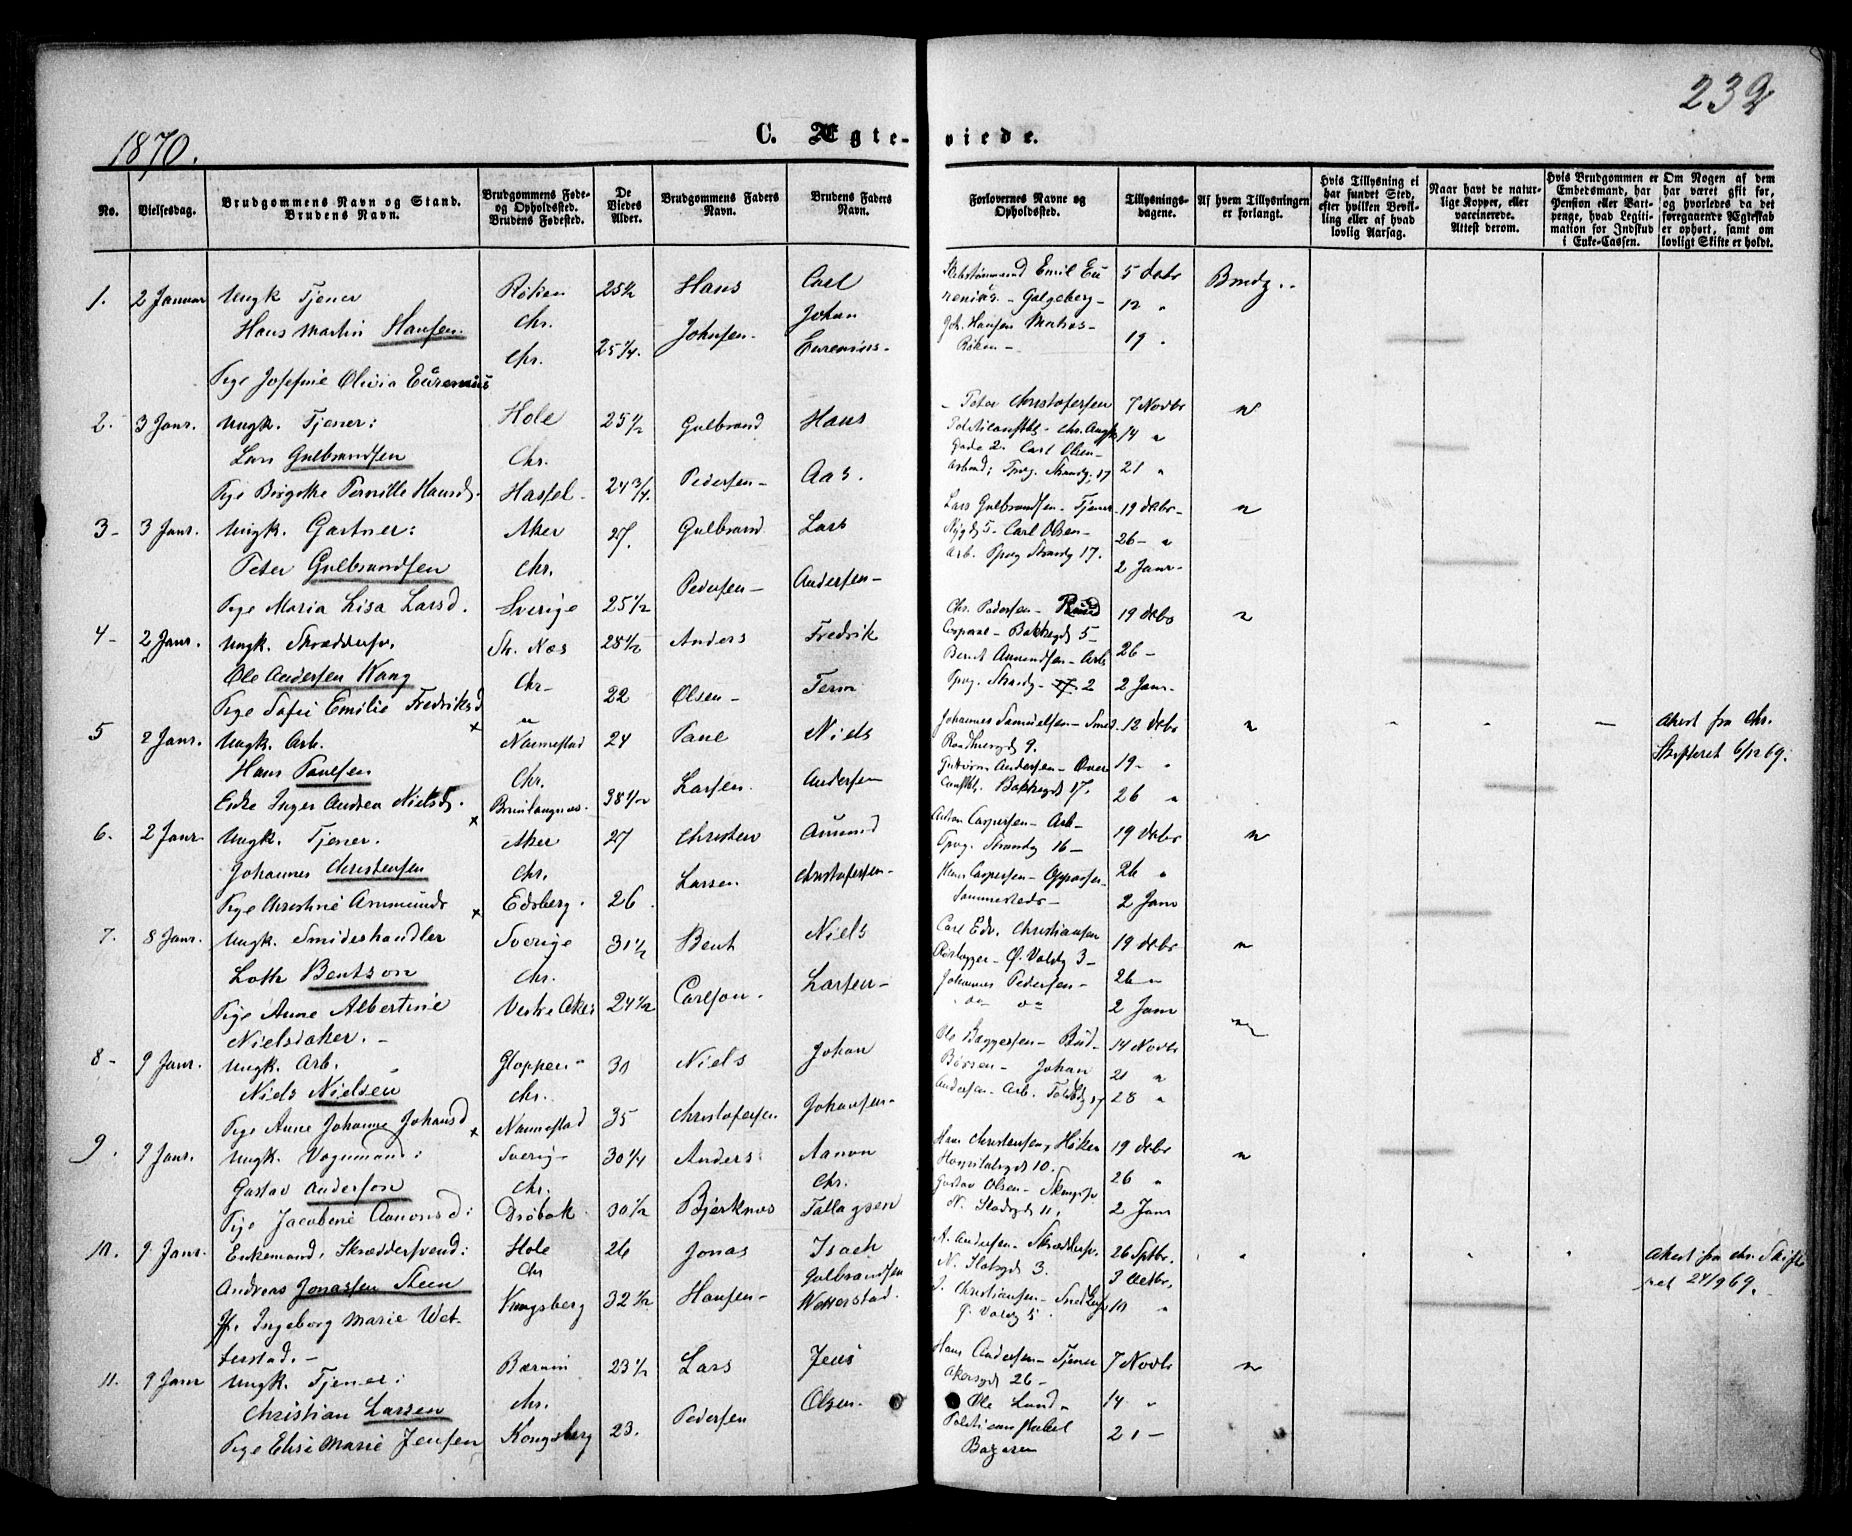 232
1870.
C. Ægte-viede.
No.
Vielsesdag.
Brudgommens Navn og Stand.
Brudens Navn.
Brudgommens Føde-
og Opholdssted.
Brudens Fødested.
De
Viedes
Alder.
Brudgommens Faders
Navn.
Brudens Faders
Navn.
Forlovernes Navne og
Opholdssted.
Tillysnings-
dagene.
Af hvem Tillysningen
er forlangt.
Hvis Tillysning ei
har fundet Sted,
efter hvilken Bevil-
ling eller af hvad
lovlig Aarsag.
Naar havt de natur-
lige Kopper, eller
vaccinerede.
Attest derom.
Hvis Brudgommen er
Embedsmand, har
Pension eller Vart-
penge, hvad Legiti-
mation for Indskud
i Enke-Cassen.
Om Nogen af dem
har været gift før,
og hvorledes da det
foregaaende Ægteskab
er ophørt, samt om
lovligt Skifte er holdt.
1. 2 Januar Ungk Tjener Røken 25½ Hans Carl
Hans Martin Hansen. Chr. Johnsen. Johan
Chr. 25¼. Eurenius-
Pige Josefine Olivia Eurenius
Emil Eu
renius - Galgeberg -
Joh. Hansen
Røken -
5 Decbr
12 "
19 .
Brudg..
2. 3 Janr. Ungk. Tjener: Hole 25½ Gulbrand Hans
Lars Gulbrandsen Chr.
Pige Birgitte Pernille Hansd. Hassel 24¾. Pedersen - Aas.
- Peter Christofersen
Gade 2. Carl Olsen -
7 Novbr
14 "
21 "
"
3 - 3 Janr. Ungk. Gartner: Aker 27. Gulbrand Lars
Peter Gulbrandsen Chr. Pedersen - Andersen -
Pige Maria Lisa Larsd. Sverige 25½
Lars Gulbrandsen - Tjener
5 - Carl Olsen -
Arb. Tpvg Strandg 17.
19 Decbr -
26 - "
2 Janr -
"
4 - 2 Janr. Ungk. Skræddersv. 28½ Anders Fredrik
Ole Andersen Chr -
Pige Sofie Emilie Fredriksd " 22 Olsen - Ferm
Chr. Pedersen -
Bakkegd 5 -
Bernt Amundsen - Arb
Tpvg. Strandg - 2
19 Decbr
26 -
2 Janr.
"
5 2 Janr. Ungk. Arb. Nannestad 24 Paul Niels
Hans Paulsen Chr. Larsen. Andersen
Enke Inger Andrea Nielsd. 38½
Johannes Samuelsen - Smed.
9.
Andersen -
Bakkegd 17.
12 Decbr
19 - "
26 "
" - " -
Akert fra Chr.
Skifteret 6/12 69.
6. 2 Janr Ungk. Tjener. Aker 27 Christen Amund
Johannes Christensen Chr. Larsen. Christofersen -
Pige Christine Ammunds Edsberg. 26.
Anton Caspersen - Arb -
Tpvg. Strandg 16 -
Hans Caspersen -
19 Decbr
26 "
2 Janr
"
7. 8 Janr. Ungk. Smideshandler Sverige 31½ Bent Niels
Loth Bentson Chr. Carlson. Larsen -
Pige Anne Albertine Vestre Aker 24½
Nielsdaker. -
Carl Edv. Christiansen
Ø. Voldg 3 -
Johannes Pedersen -
do - do
19 Decbr
26 - "
2 Janr
"
8 - 9 Janr. Ungk. Arb. Gloppen - 30 Niels Johan
Niels Nielsen Chr.
Pige Anne Johanne Johansd Nannestad 35 Christofersen Johansen -
Ole Baggersen - Bud -
Børsen - Johan
Andersen - Arb.
14 Novbr
21 "
28 "
"
9. 9 Janr. Ungk. Vognmand: Sverig - 30¼ Anders Aanon
Gustav Anderson Chr. Chr.
Pige Jacobine Aanonsd: Drøbak. 30½ Bjerknes Tallagsen
Hans Christensen, Høker
Hospitalsgd 10.
Gustav Olsen -
N. Slodsgd 11,
19 Decbr
26 "
2 Janr
"
10. 9 Janr. Enkemand. Skræddersvend: Hole 26 Jonas Isach
Andreas Jonassen Steen Chr Gulbrandsen
Jf. Ingeborg Marie Wet- Kongsberg 32½ Hansen - Wetterstad.
terstad. -
A. Andersen - Skræddersv.
N. Slotsgd 3.
J. Christiansen -
Ø. Voldg 5.
26 Sptbr.
3 Octbr.
10 "
" " " "
Akert fra Chr. Skifte
ret 24/9 69.
11. 9 Janr Ungk. Tjener: Bærum 23½ Lars Jens
Christian Larsen Chr. Pedersen Olsen.
Pige Elise Marie Jensen Kongsberg 23.
Hans Andersen - Tjener
Akersgd 26 -
Ole Lund.
Politiconstabel
Bazaren
7 Novbr
14 "
21 -
"